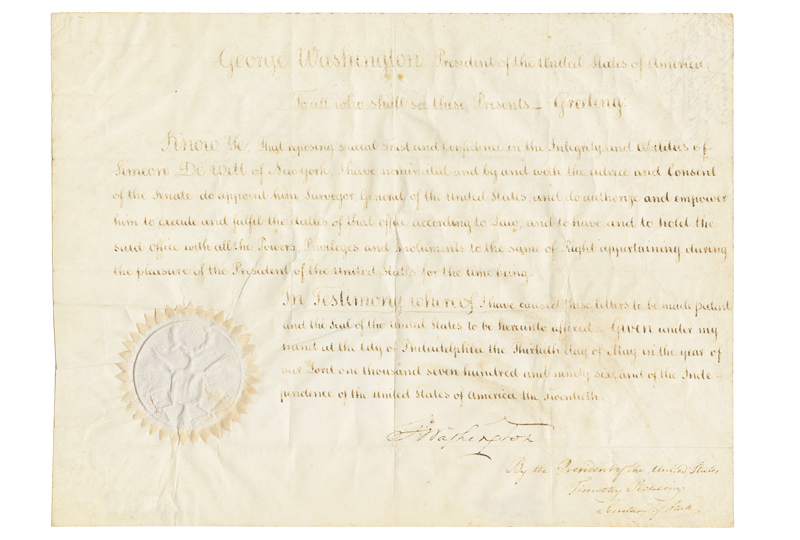 George Washington President of the United States of America,
To all who shall see these Presents – Greeting:
Know Ye, That reposing special Trust and Confidence in the Integrity and Abilities of
Simeon De Witt of New York, I have nominated and by and with the advice and Consent
of the Senate do appoint him Surveyor General of the United States, and do authorize and empower
him to execute and fulfil the duties of that office according to Law; and to have and to hold the
said office with all the Powers, Privileges and Emoluments to the same of Right appertaining during
the pleasure of the President of the United States for the time being.
In Testimony whereof I have caused these letters to be made patent
and the Seal of the United States to be hereunto affixed. Given under my
hand at the City of Philadelphia the Thirtieth day of May in the year of
our Lord one thousand seven hundred and ninety six, and of the Inde-
pendence of the United States of America the Twentieth.
Go Washington
By the President of the United States
Timothy Pickering
Secretary of State.